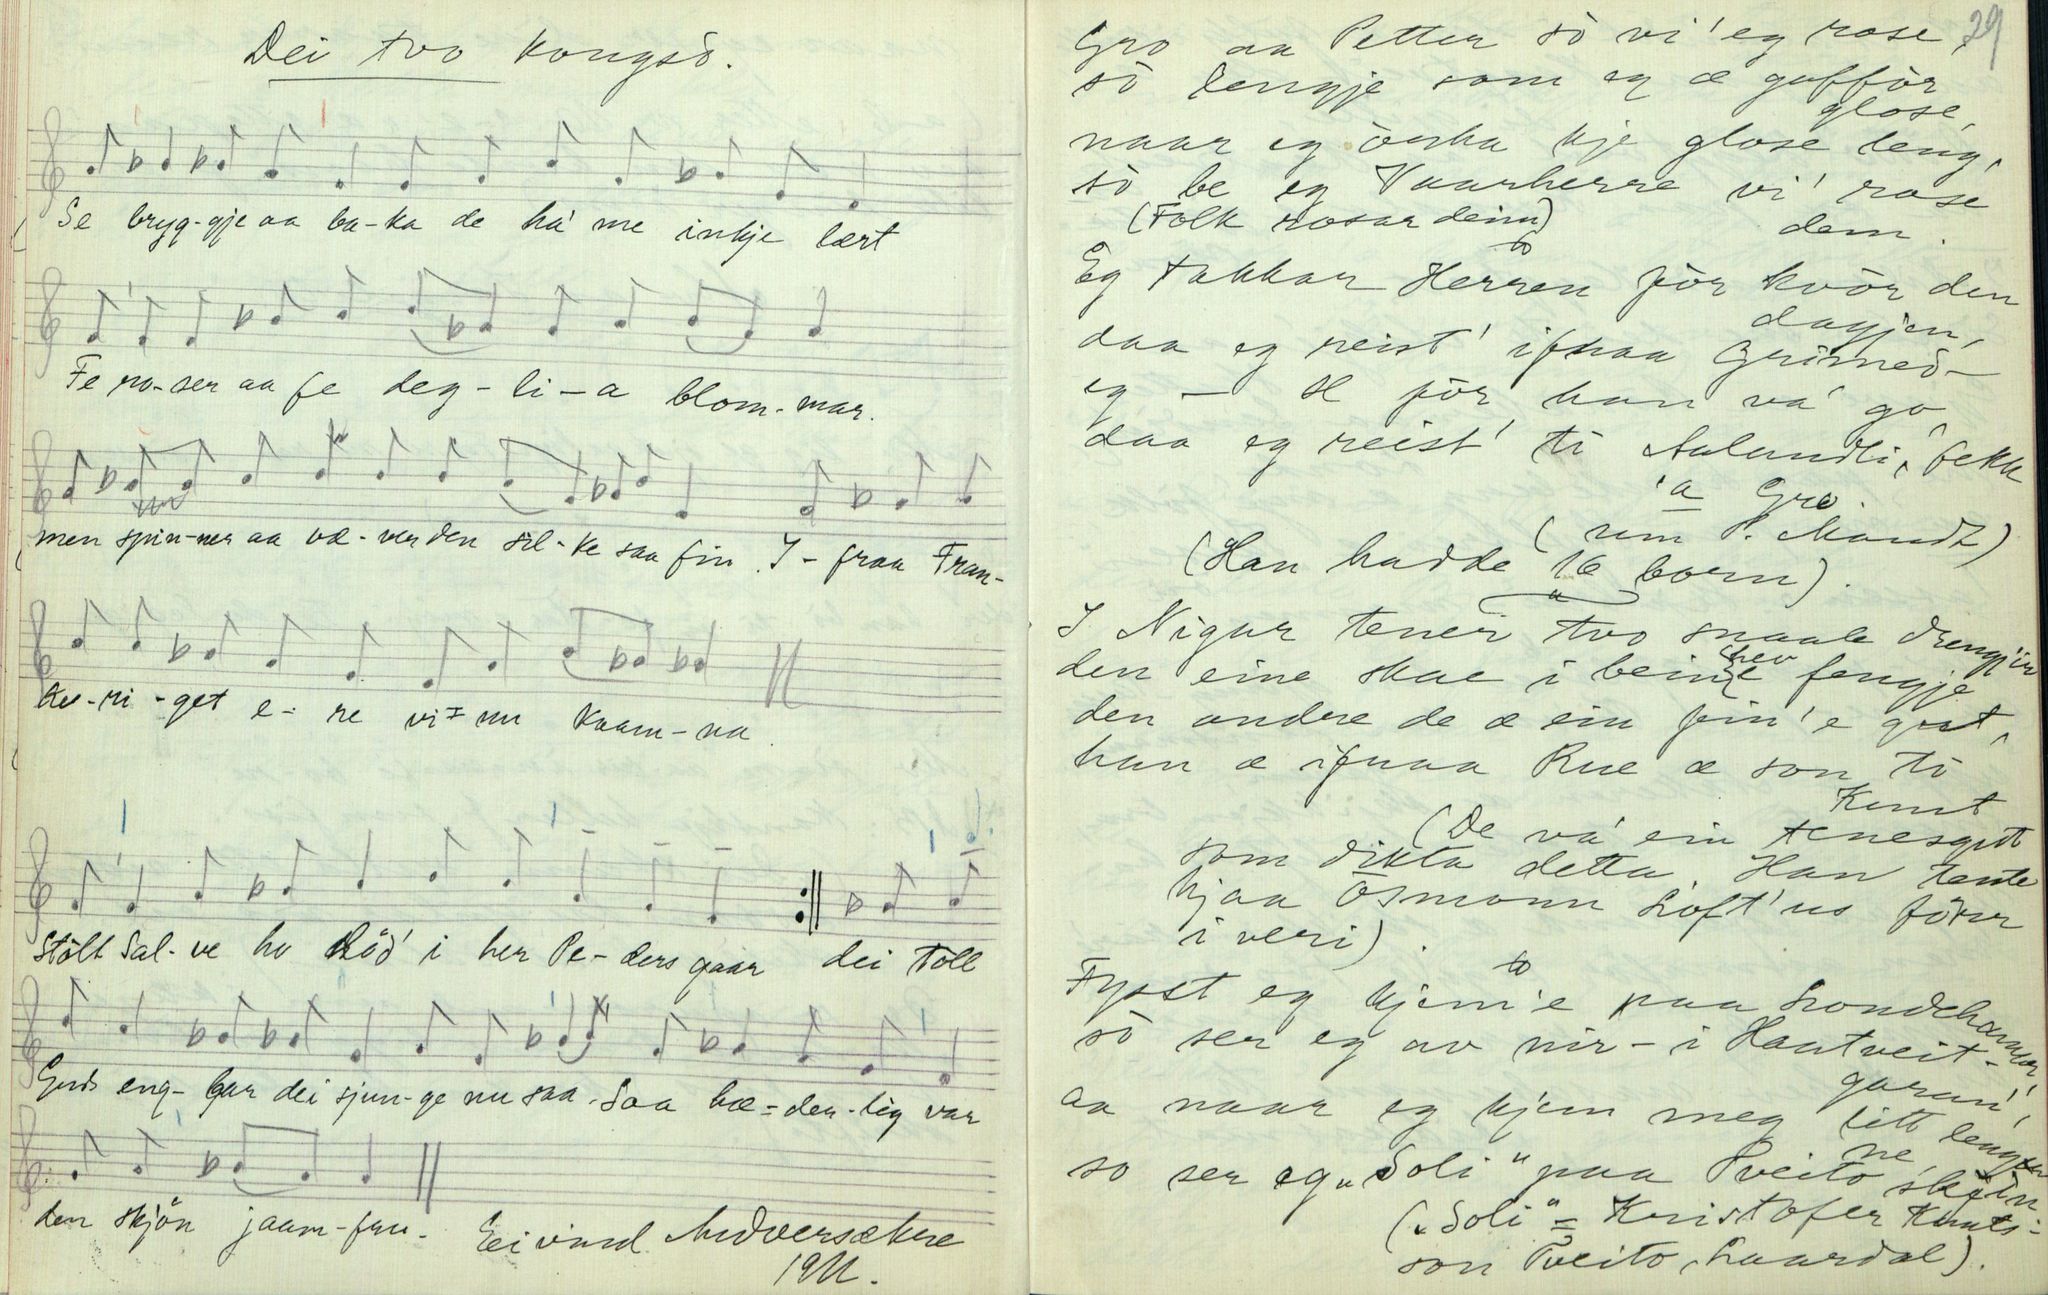 Dei tvo kongsò.
Se bryg-gje aa ba-ka de ha' me inkje lært
Fe ro-ser aa fe deg-li-a blom-mar.
men spin-ner aa væ-ver den sil-ke saa fin. I-fraa Fran-
ke-ri-get e-re vi nu kaam-na.
Stòlt Sal-ve ho löd' i her Pe-ders gaar dei tòll
Guds eng-lar dei sjun-ge nu saa. Saa hæ-der-lig var
den skjön jaam-fru.
Eivind Midversækre
1911.
29
Gro aa Petter sò vi' eg rose,
sò lengje som eg æ guffòr
glose,
naar eg òrka kje glose leng,
sò be eg Vaarherre vi' rose
dem.
(Folk rosar deim)
Eg takkar Herren fòr kvòr den
dagjen,
daa eg reist' ifraa Grimed-
eg - H fòr han va' go,
daa eg reist' ti Aalandli, fekk
'a Gro.
(um P. Mandt)
(Han hadde 16 born).
I Nigar tener tvo snaale drengjir
den eine skae i beine hev fengje
den andre de æ ein fin'e gut,
han æ ifraa Rue æ son ti
Knut
(De va' ein tenesgut
som dikta detta. Han tente
hjaa Òsmonn Loft'us förr
i veri).
Fysst eg kjem'e paa Londehammar,
sò ser eg av nir-i Hautveit-
garan',
aa naar eg kjem meg litt lenger
ne,
so ser eg „Soli" paa Tveito skjin
(„Soli" = Kristofer Knuts-
son Tveito, Laardal).